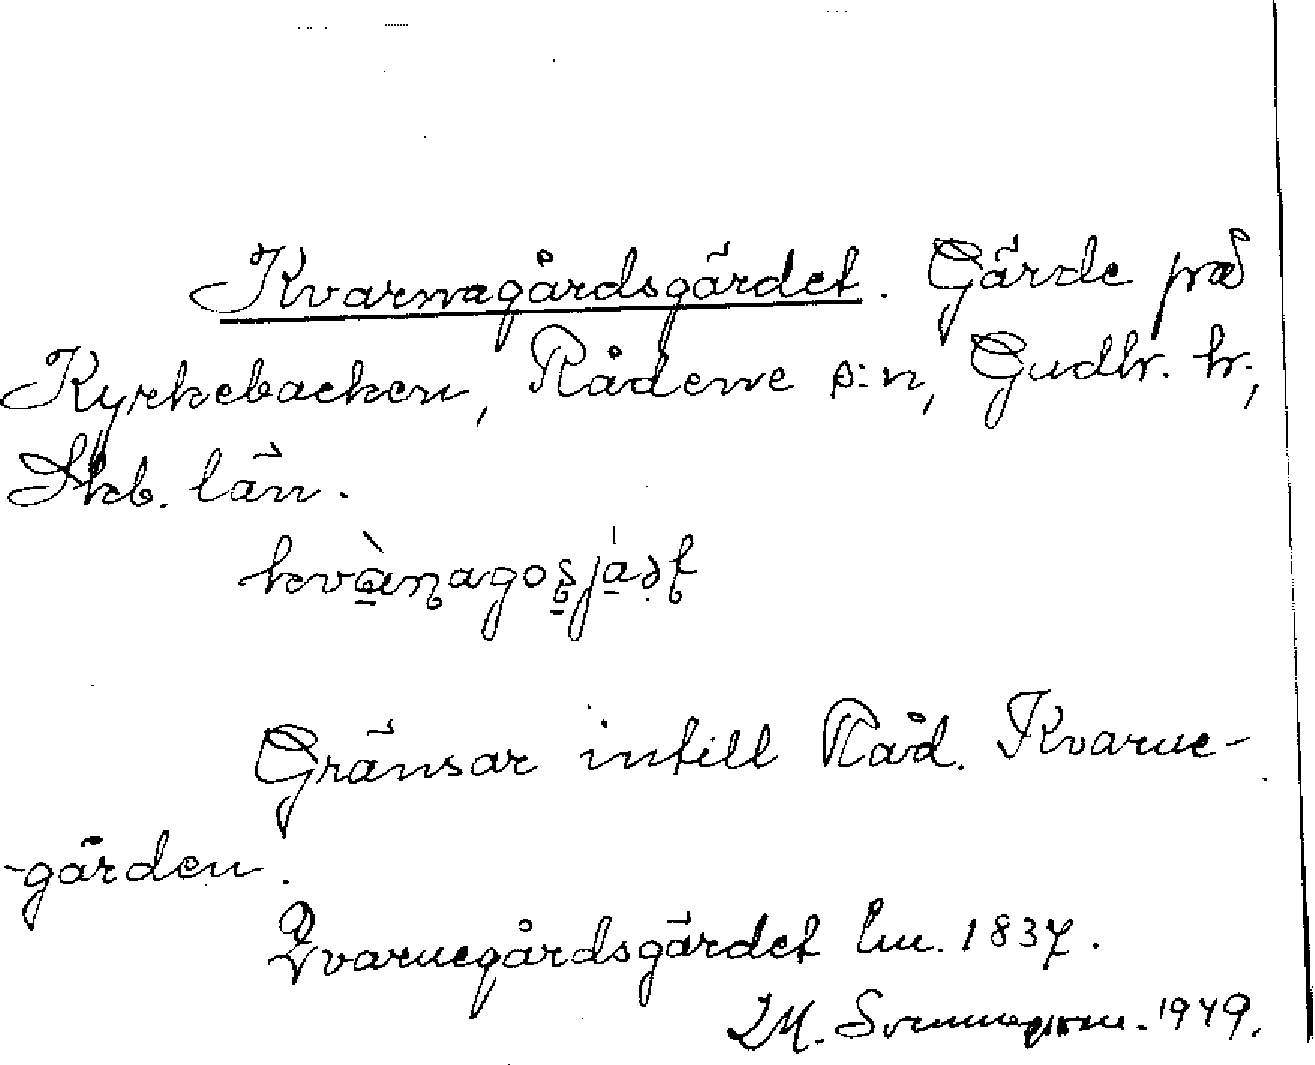 Kvarnagårdsgärdet. Gärde på
Kyrkebacken, Rådene s:n, Gudh. h;
Skb. län.
kvànagosjást
Gränsar intill Råd. Kvarne-
-gården.
Qvarnegårdsgärdet Lm. 1837.
M. 1949.